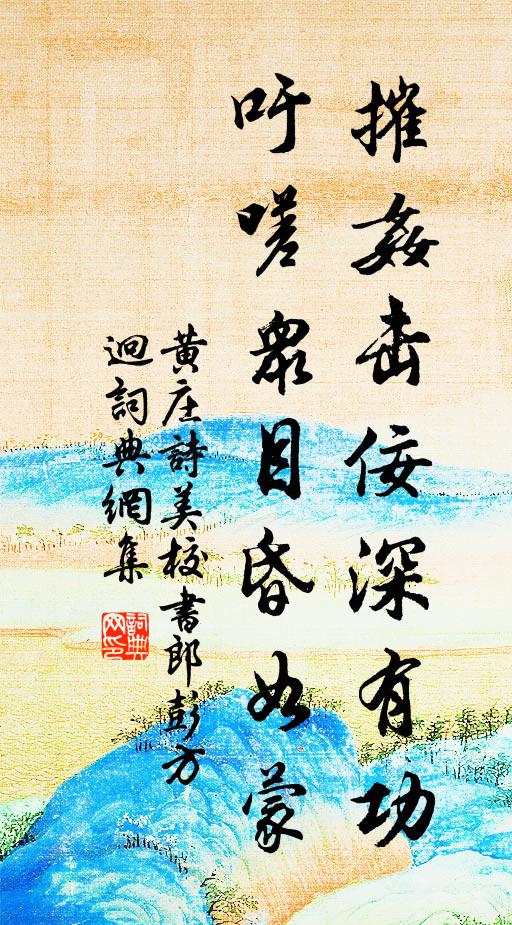 摧姦击佞深有功
吁嗟衆目昏如蒙
黄庄詩美校書郎彭方
迥詞典網集
詞典网印